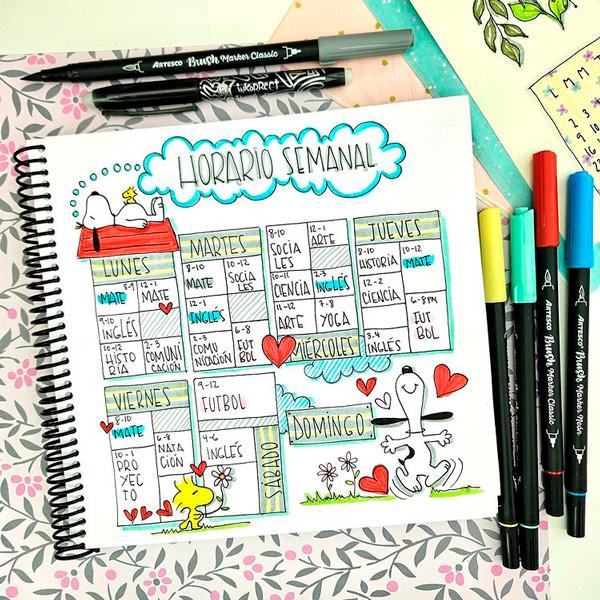 ARTESCO Brush Marker Classic
INKORRECT
HORARIO SEMANAL
LUNES
8-9
MATE
12-1
MATE
9-10
INGLÉS
10-12
HISTO
RIA
2-3
COMUNI
CACIÓN
MARTES
8-10
MATE
10-12
SOCIA
LES
12-1
INGLÉS
2-3
COMU
NICACIÓN
6-8
FUT
BOL
8-10
SOCIA
LES
12-1
ARTE
10-11
CIENCIA
2-3
INGLÉS
11-12
ARTE
7-8
YOGA
MIÉRCOLES
JUEVES
8-10
HISTORIA
10-12
MATE
12-2
CIENCIA
6-8PM
FUT
BOL
3-4
INGLÉS
VIERNES
8-10
MATE
10-1
PRO
YEC
TO
6-8
NATA
CIÓN
9-12
FUTBOL
4-6
INGLÉS
SÁBADO
DOMINGO
L M M
2 3
9 10
ARTESCO Brush Marker Classic
ARTESCO Brush Marker Neón